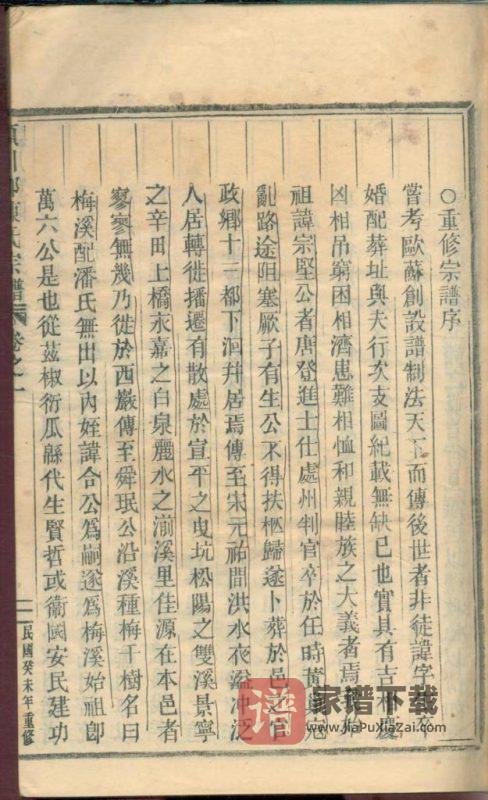 ○重修宗譜序
嘗考歐蘇創設譜制法天下而傳後世者非徒諱字生卒
婚配葬址與夫行次支圖紀載無缺已也實具有吉相慶
凶相吊窮困相濟患難相恤和親睦族之大義者焉
祖諱宗堅公者唐登進士仕處州判官卒於任時黃寇
亂路途阻塞厥子有生公不得扶柩歸遂卜葬於邑之官
政鄉十三都下洄幷居焉傳至宋元祐間洪水衣溢冲泛
人居轉徙播遷有散處於宣平之曳坑松陽之雙溪景寧
之辛田上橋永嘉之白泉麗水之湔溪里佳源在本邑者
寥寥無幾乃徙於西嚴傳至舜珉公沿溪種梅千樹名曰
梅溪配潘氏無出以內姪諱合公為嗣遂為梅溪始祖卽
萬六公是也從茲椒衍瓜緜代生賢哲或衛國安民建功
川郡 氏宗譜 卷之一
一 民國癸未年重修
譜 家谱下载
www.jiaPuXiaZai.com